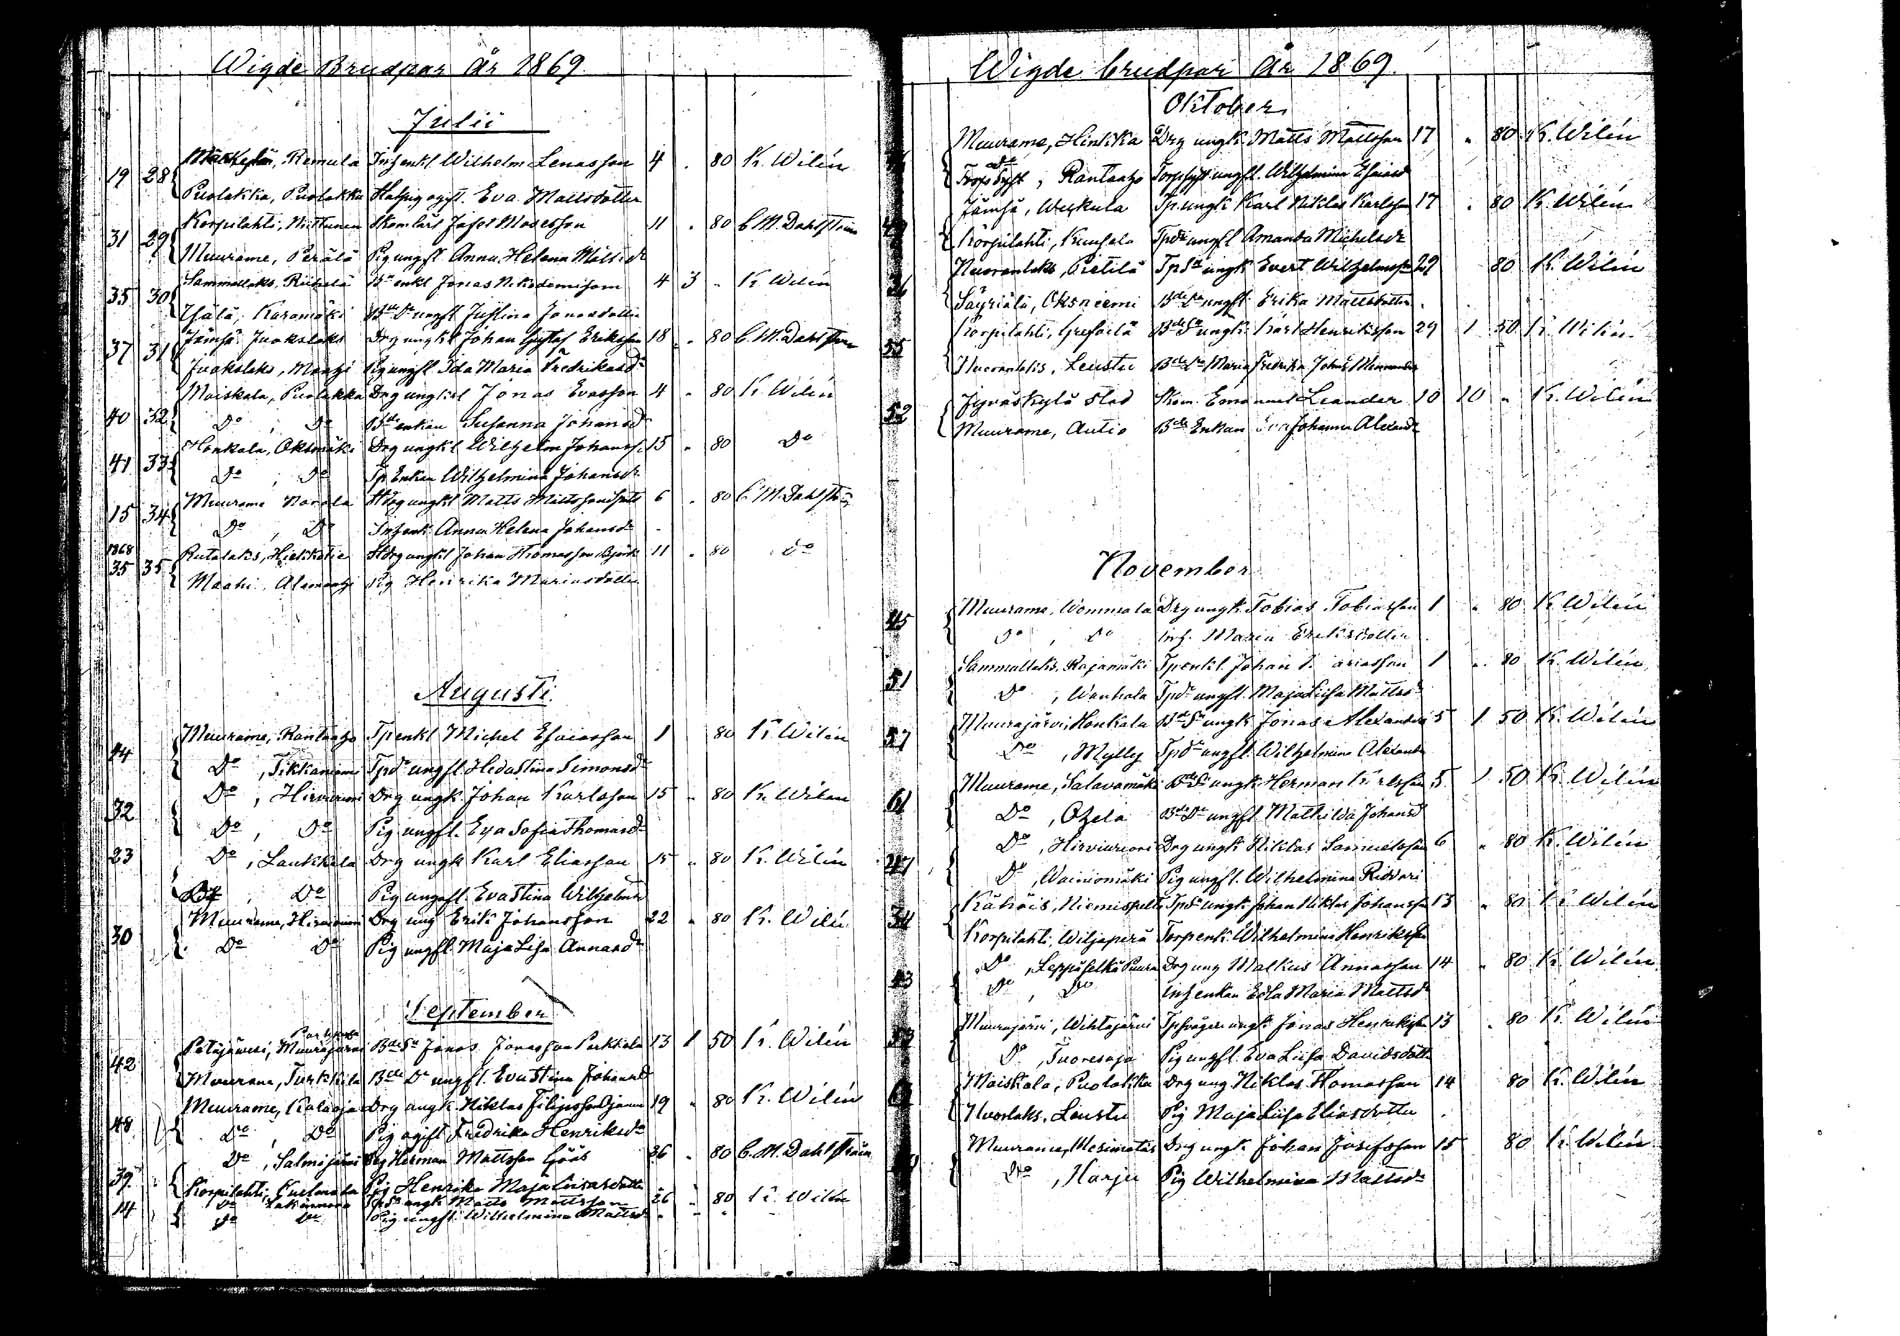 Wigde Brudpar År 1869
Julii
19 28 Markkula, Remula Inh enkl Wilhelm Lenasson 4 . 80 K. Wilén
Puolakka, Puolakka Hafvug ogift. Eva Mattsdotter
31 29 Korpilahti, Niittunen Skomlärl Jafet Mosesson 11 . 80 C. M. Dahlström
Muurame, Perälä Pig ungfl Anna Helena Mattsdr
35 30 Sammallaks, Riihelä Bn enkl Jonas Nikodemisson 4 3 . K. Wilén
Ylälä, Karamäki Bde Dr ungfl Justina Jonasdotter
37 31 Jämsä, Juokslaks Drg ungkl Johan Gustaf Eriksson 18 . 80 C. M. Dahlström
Juokslaks, Pig ungfl Ida Maria Fredriksdr
40 32 Moiskala, Puolakka Drg ungkl Jonas Evasson 4 . 80 K. Wilén
Do , Do Bde enkan Susanna Johansdr
41 33 Honkala, Oksmäki Drg ungkl Wilhelm Johanss. 15 . 80 Do
Do , Do Tp Enkan Wilhelmina Johansdr
15 34 Muurame Norola Hdrg ungkl Matts Mattsson 6 . 80 C. M. Dahlström
Do , Do Inh enk Anna Helena Johansdr
1868
35 35 Rutalaks, Hiekkatie Hdrg ungkl Johan Thomasson Björk 11 . 80 do
Maahi Pig Henrika Mariasdotter
Augusti
44 Muurame, Rantaaho Tp enkl Michel Esaiasson 1 80 K. Wilén
Do , Tikkaniemi Tpdr ungfl. Heda Stina Simonsdr
32 Do , Hirvivuori Drg ungk. Johan Karlsson 15 . 80 K. Wilén
Do , Do Pig ungfl. Eva Sofia Thomasdr
23 Do , Laukkala Drg ungk Karl Eliasson 15 . 80 K. Wilén
Do , Do Pig ungfl. Eva Stina Wilhelmsdr
30 Muurame, Hirvivuori Drg ung Erik Johansson 22 . 80 K. Wilén
Do Do Pig ungfl. Maja Lisa Annasdr
September
Parkkola
42 Petäjävesi, Muurajärvi Bde So Jonas Jonasson Parkkola 13 1 50 K. Wilén
Muurame, Turkkila Bde Dr ungfl. Eva Stina Johansd
48 Muurame, Kalaoja Drg ungk. Niklas Filipsson 19 . 80 K. Wilén
Do , Do Pig ogift Fredrika Henriksdr
39 Do , Salmijärvi Drg Herman Mattsson Gröös 26 . 80 C. M. Dahlström
Korpilahti, Pig Henrika Maja Liisasdotter
14 Do ungk Matts Mattsson 26 . 80 K. Wilén
Do Do Pig ungfl. Wilhelmina Mattsdr
Wigde brudpar År 1869.
Oktober
Muurame, Hinkka Drg ungk. Matts Mattsson 17 . 80 K. Wilén
Do
Rantaaho Torpdr ungfl. Wilhelmina Esaiasd
49 Jämsä, Weikula Tp. ungk Karl Niklas Karlsson 17 . 80 K. Wilén
Korpilahti, Tpdr ungfl Amanda Michelsdr
36 Nuoranlaks, Pietilä Tpsn ungk Evert Wilhelmsson 29 80 K. Wilén
Säyriälä, Oksniemi Bde Dr ungfl. Erika Mattsdotter
55 Korpilahti, Bde So ungk. Karl Henriksson 29 1 50 K. Wilén
Nuoranlaks, Leustu Bde Dr Maria Fredrika Johns
52 Jyväskylä stad Skom. Emanuel Leander 10 10 . K. Wilén
Muurame, Autio Bde Enkan Eva Johanna Alexandr
November
45 Muurame, Wommala Drg ungk. Tobias Tobiasson 1 . 80 K. Wilén
Do , Do Inh. Maria Eriksdotter
51 Sammallaks, Rajamäki Tp enkl. Johan 1 . 80 K. Wilén
Do , Wanhala Tpdr ungfl. Maja Lisa Mattsdr
57 Muurajärvi, Honkala Bde So ungk Jonas Alexanders 5 1 50 K. Wilén
Do , Mylly Tpdr ungfl. Wilhelmina Alexandr
61 Muurame, Salavamäki Bde So ungk. Herman Karlsson 5 1 50 K. Wilén
Do , Otsela Bde Dr ungfl Mathilda Johansd
47 Do , Hirvivuori Drg ungk Niklas Samuelsson 6 . 80 K. Wilén
Do , Wainiomäki Pig ungfl. Wilhelmina Riddari
34 Kähöis, Niemispelto Tpsn ungk Johan Niklas Johansson 13 . 80 K. Wilén
Korpilahti, Wiljaperä Torpenk. Wilhelmina Henriksdr
43 Do , Leppäselkä Puura Drg ung Malkus Annasson 14 . 80 K. Wilén
Do , Do Inh enkan Edla Maria Mattsdr
53 Muurajärvi, Wihtajärvi Tpsvåger ungk. Jonas Henriksson 13 . 80 K. Wilén
Do , Tuoresoja Pig ungfl. Eva Lisa Davidsdotter
Moiskala, Puolakka Drg ung Niklas Thomasson 14 80 K. Wilén
Nuorlaks, Leustu Pig Maja Lisa Eliasdotter
Muurame, Drg ungk. Johan Josefsson 15 80 K. Wilén
Do , Harju Pig Wilhelmina Mattsdr